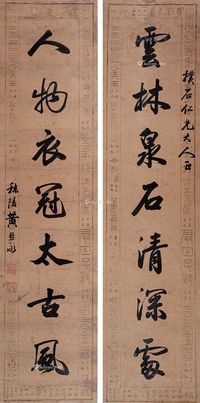 雲林泉石清深處
樸石仁兄大人正
人物衣冠太古風
秣陵黃